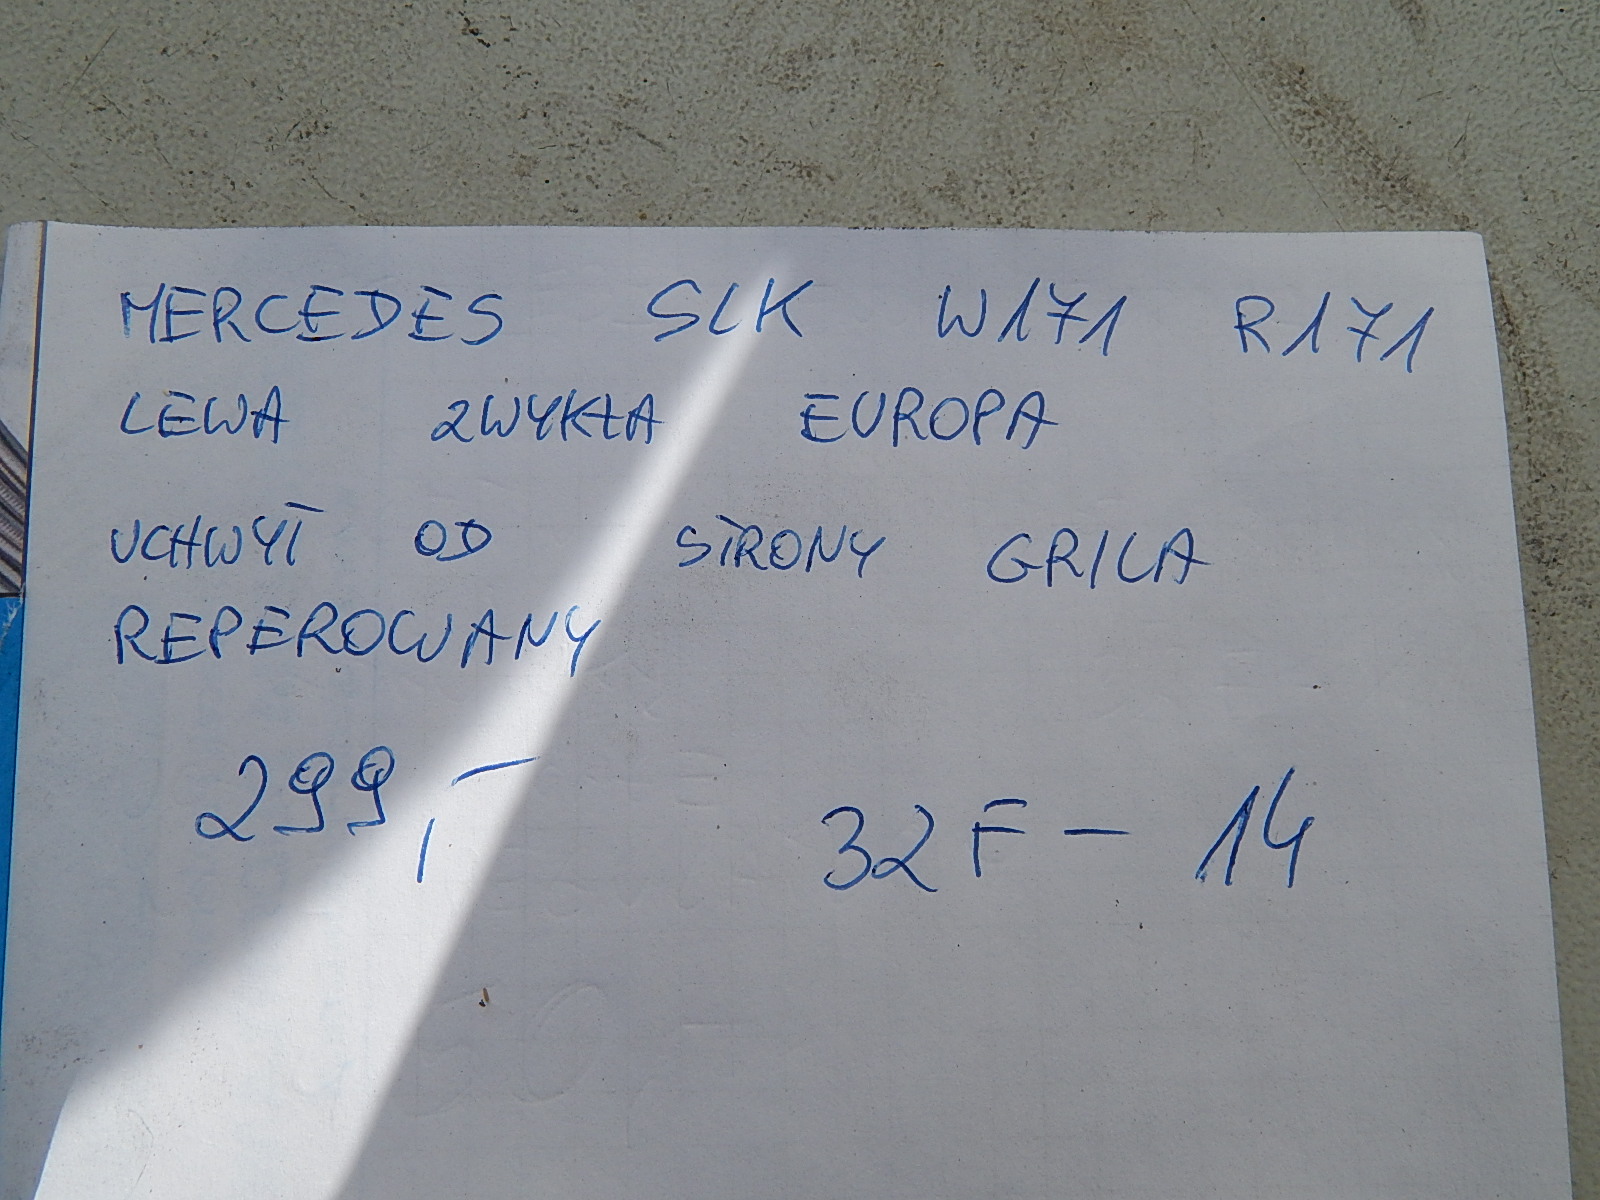 MERCEDES SLK W171 R171
LEWA ZWYKŁA EUROPA
UCHWYT OD STRONY GRILA
REPEROWANY
299,- 32F-14